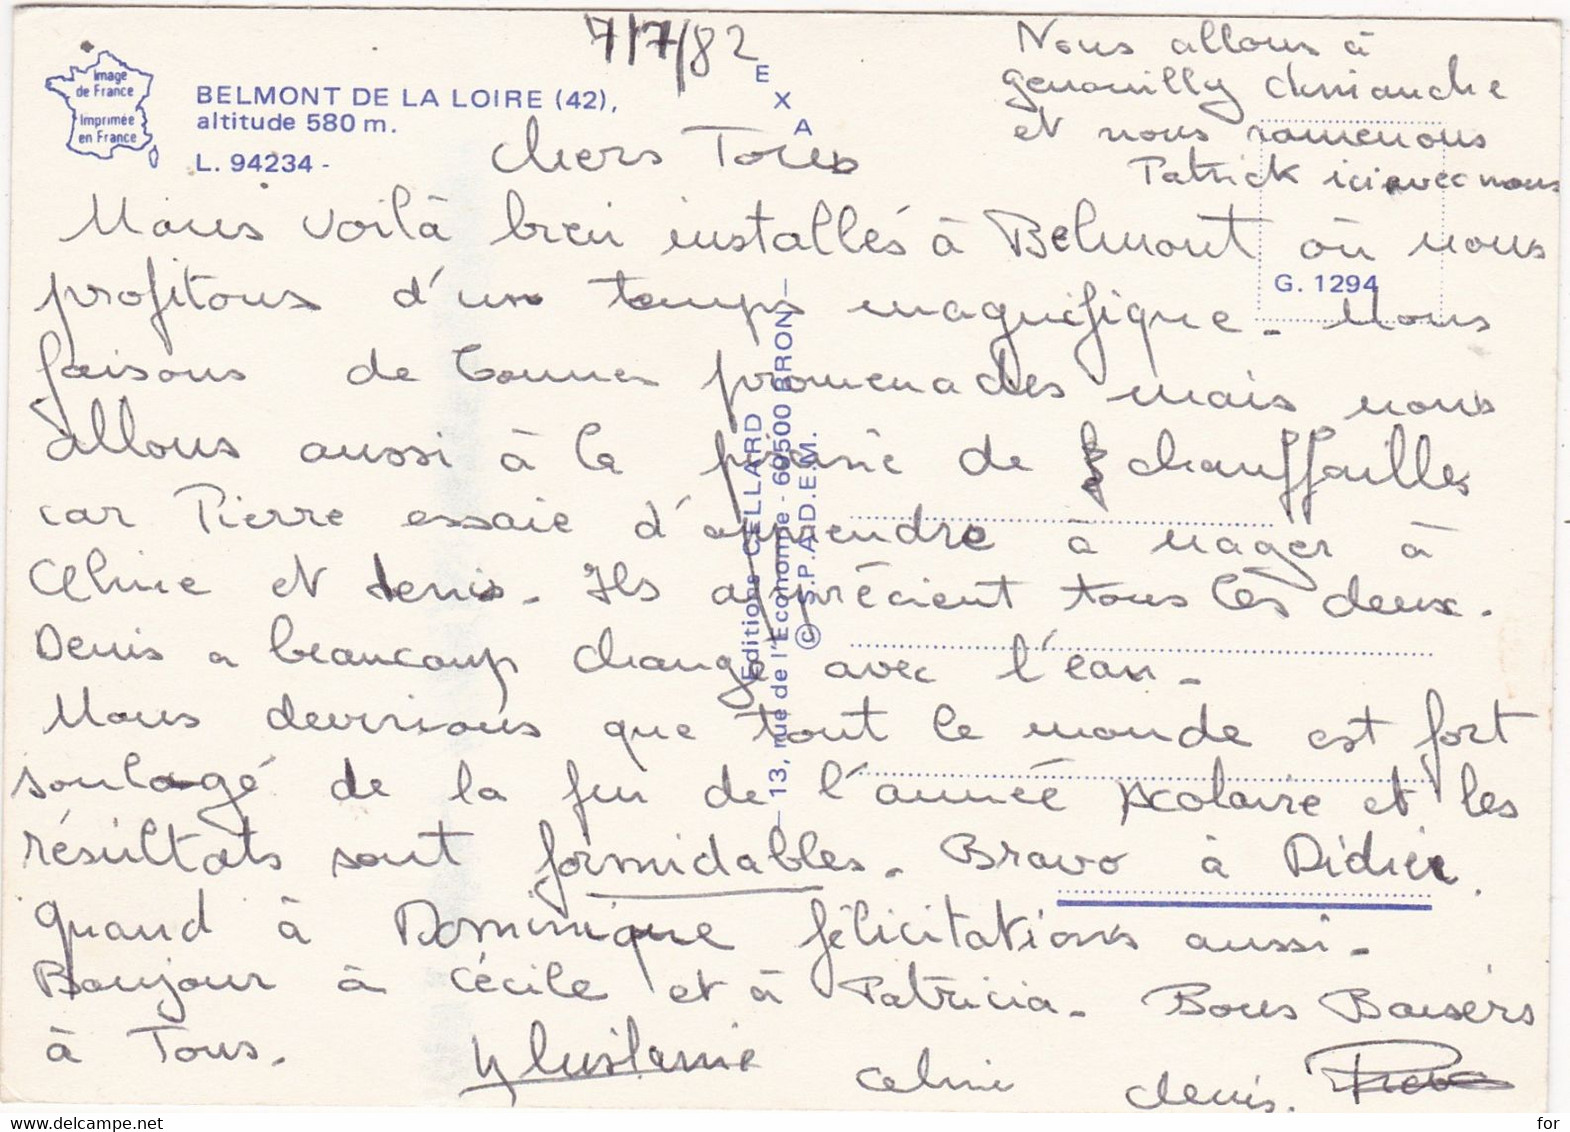 7/7/82
Nous allons à
genouilly dimanche
et nous ramenons
Patrick ici avec nous
Image
de France
Imprimée
en France
BELMONT DE LA LOIRE (42),
altitude 580 m.
L. 94234 -
E
X
A
G. 1294
Editions CELLARD
— 13, rue de l'Economie - 69500 BRON —
© S.P.A.D.E.M.
Chers Tous
Nous voilà bien installés à Belmont où nous
profitons d'un temps magnifique - Nous
faisons de bonnes promenades mais nous
allons aussi à la piscine de chauffailles
car Pierre essaie d'apprendre à nager à
Céline et denis. Ils apprécient tous les deux.
Denis a beaucoup changé avec l'eau -
Nous devinions que tout le monde est fort
soulagé de la fin de l'année scolaire et les
résultats sont formidables. Bravo à Didier.
Quand à Dominique félicitations aussi.
Bonjour à Cécile et à Patricia. Bons Baisers
à Tous.
Céline
denis.
for